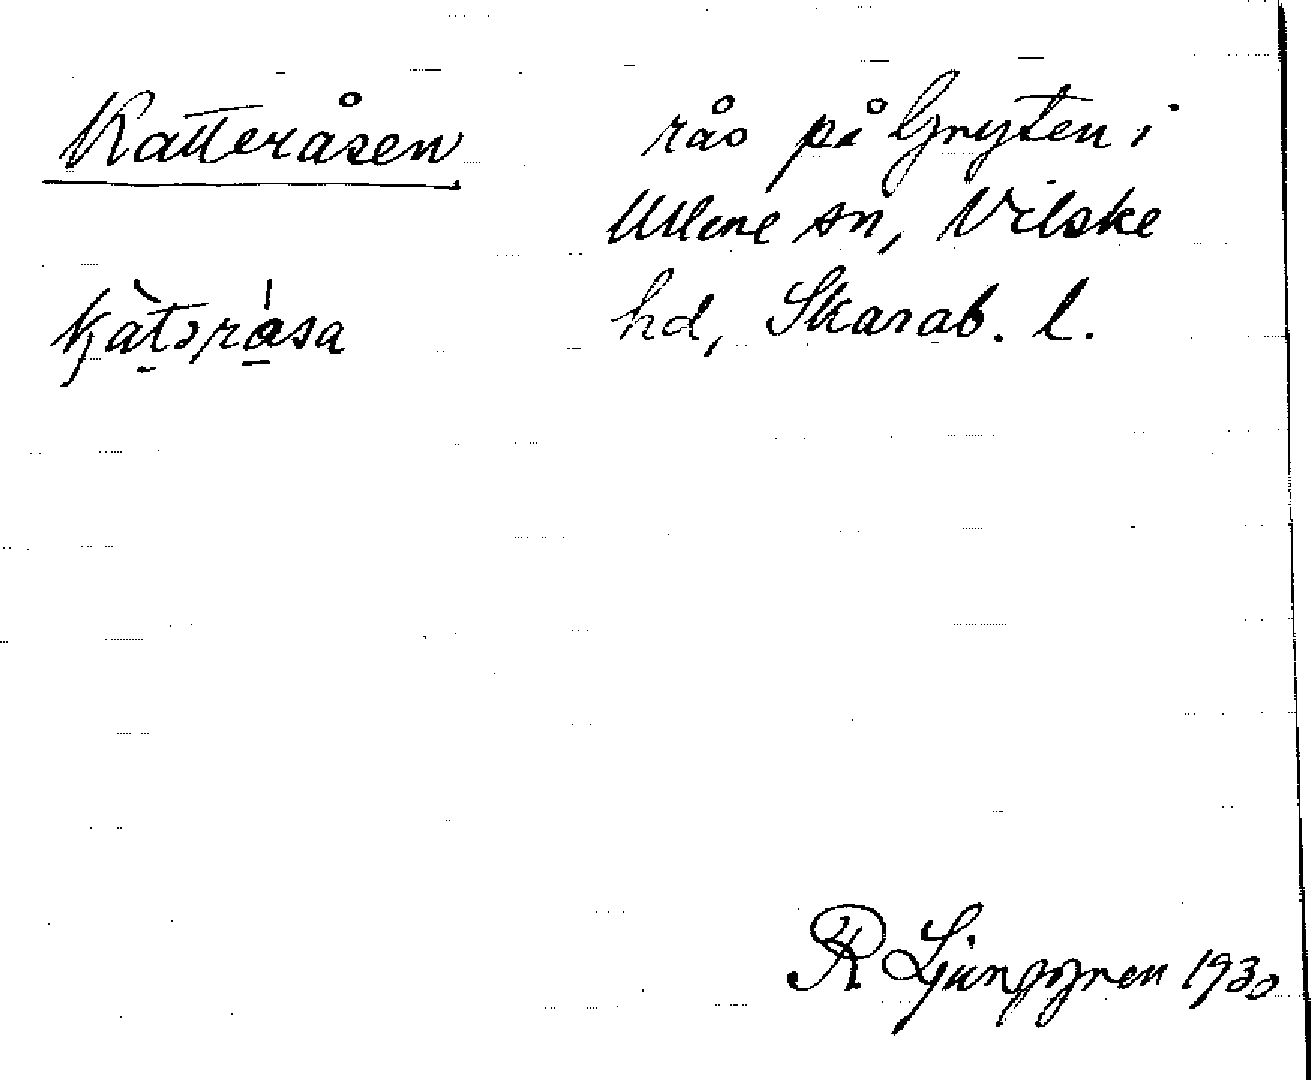 Katteråsen
kàtəråsa
rås på Gryten i
Ullene sn, Vilske
hd, Skarab. l.
R Ljunggren 1930